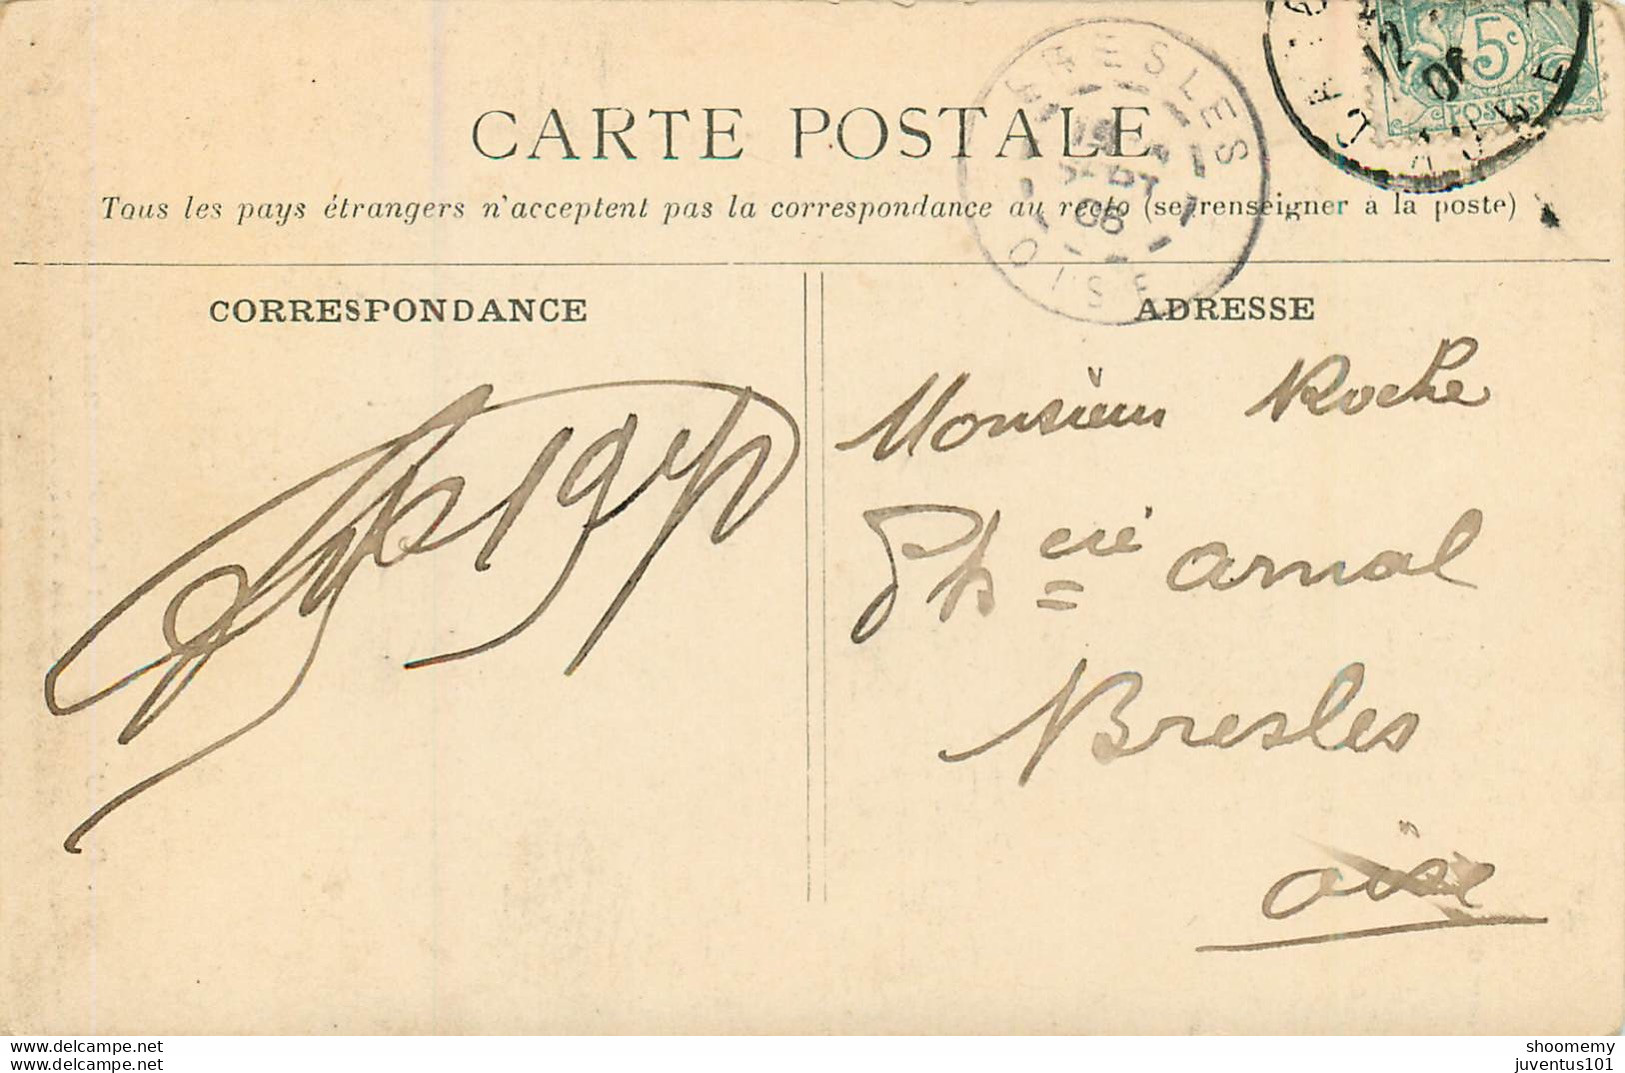 CARTE POSTALE
Tous les pays étrangers n'acceptent pas la correspondance au recto (se renseigner à la poste)
CORRESPONDANCE
ADRESSE
BRESLES
SEPT
06
OISE
12
06
AUBE
5c
POSTES
Monsieur Roche
Phcie Arnal
Bresles
Oise
www.delcampe.net
www.delcampe.net
shoomemy
juventus101